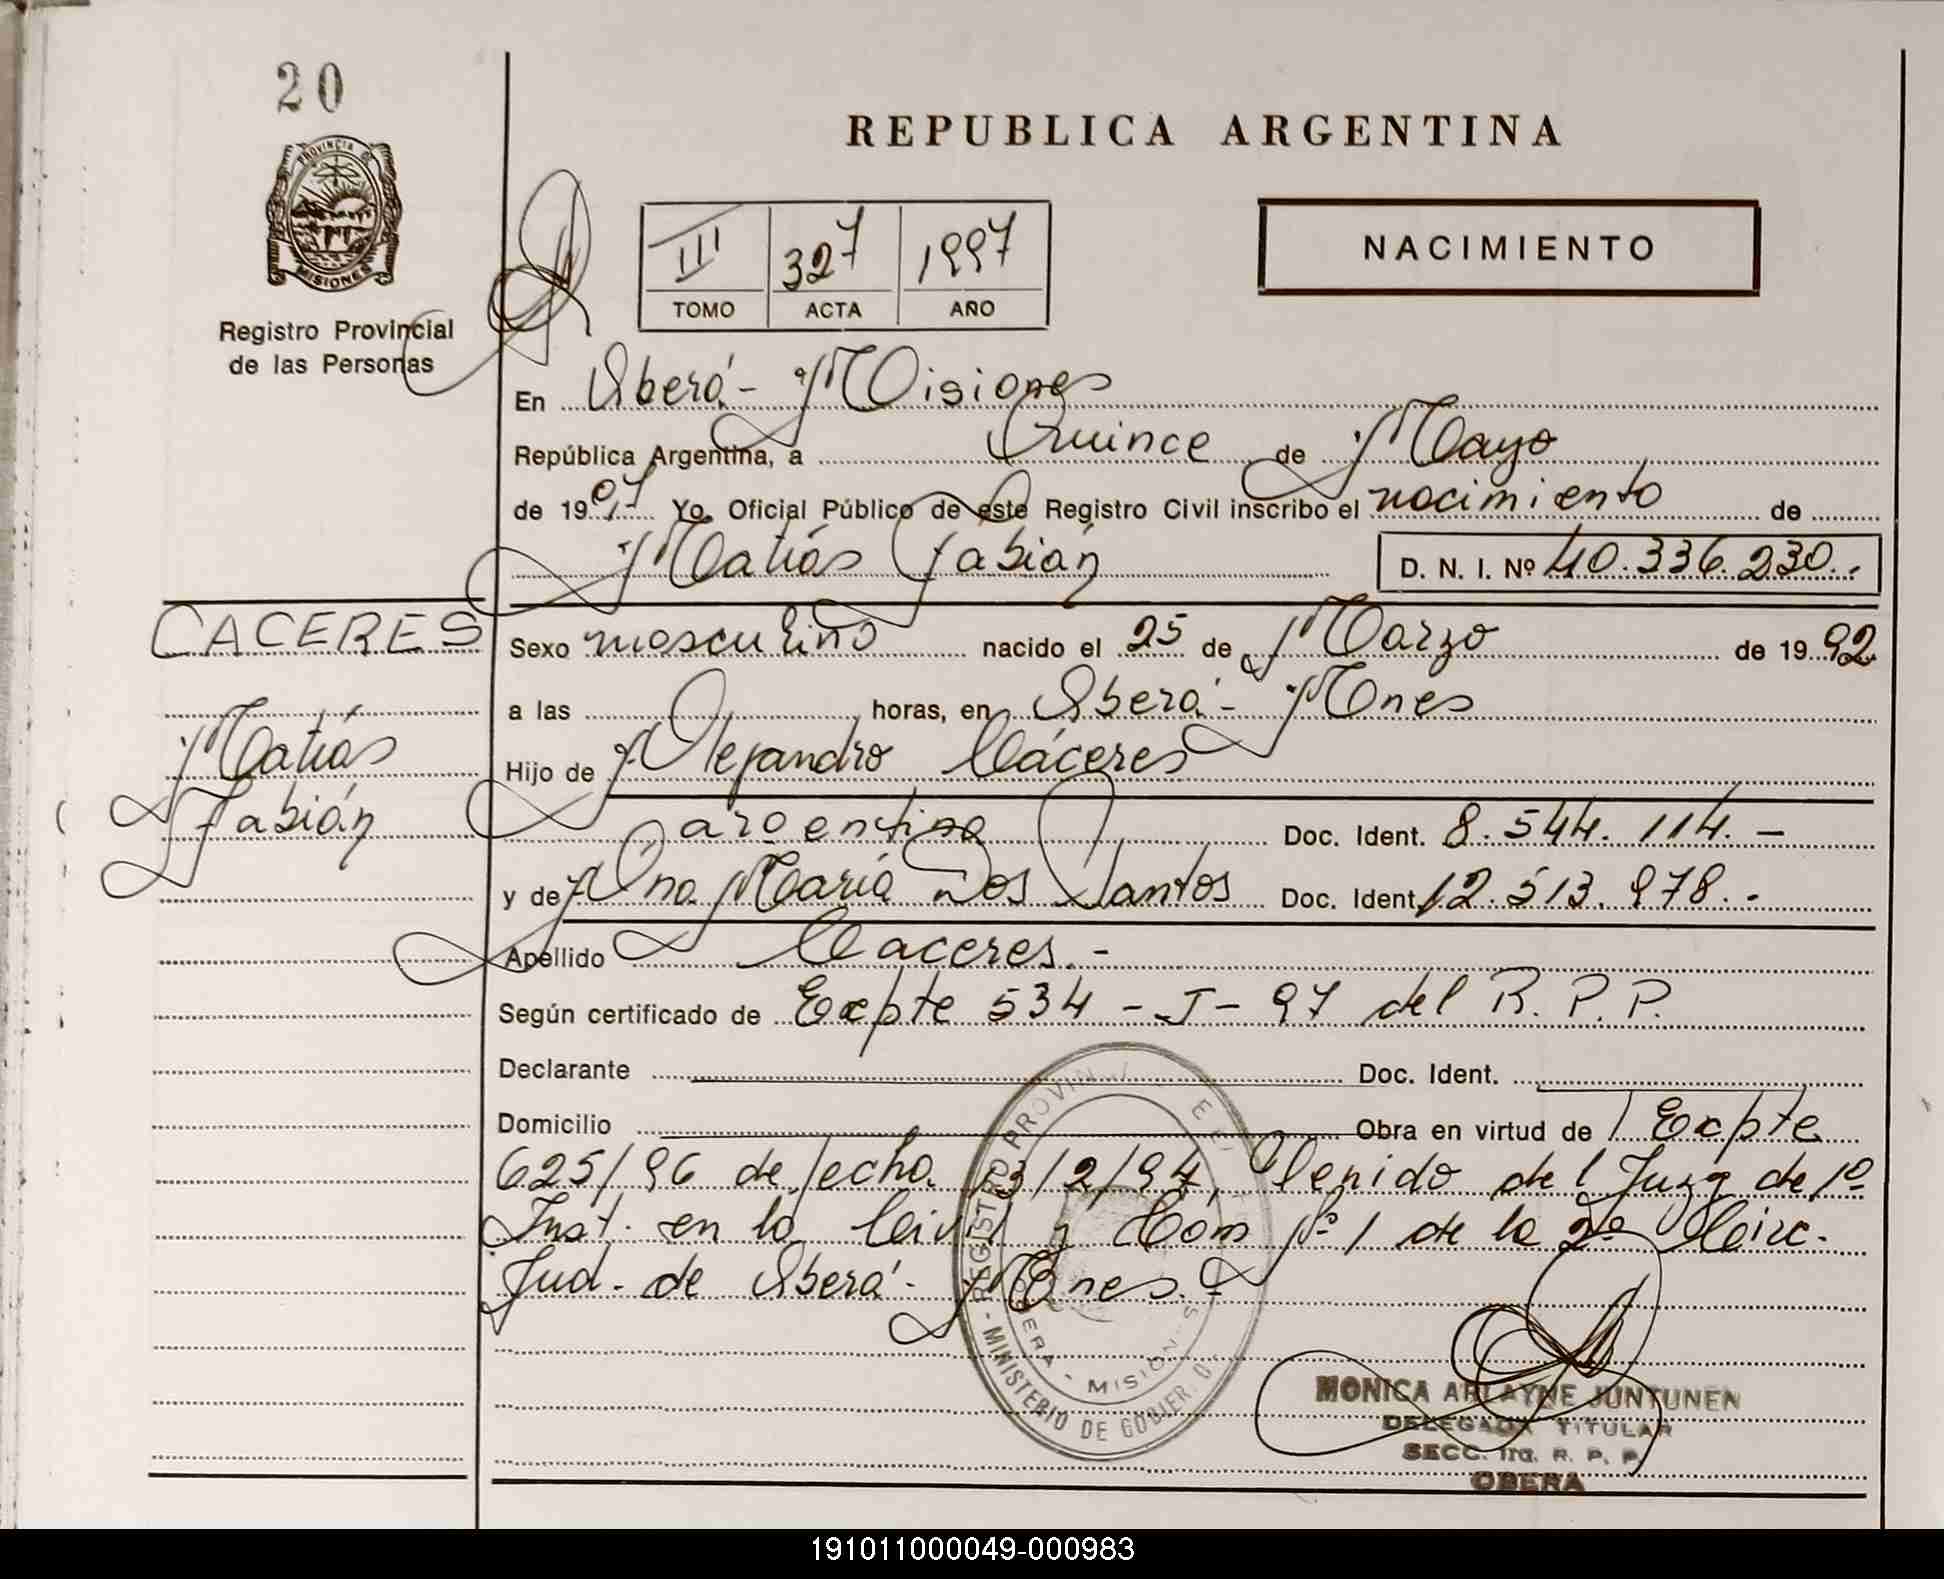 20
PROVINCIA DE
MISIONES
Registro Provincial
de las Personas
REPUBLICA ARGENTINA
III 327 1997
TOMO ACTA AÑO
NACIMIENTO
En Oberá - Misiones
República Argentina, a Quince de Mayo
de 1997 Yo, Oficial Público de este Registro Civil inscribo el nacimiento de
Matías Fabián D. N. I. Nº 40.336.230.-
CACERES
Matías
Fabián
Sexo masculino nacido el 25 de Marzo de 1992
a las horas, en Oberá - Mnes
Hijo de Alejandro Cáceres
argentino Doc. Ident. 8.544.114.-
y de Ana María Dos Santos Doc. Ident. 12.513.978.-
Apellido Caceres.-
Según certificado de Expte 534 - J - 97 del R.P.P.
Declarante Doc. Ident.
Domicilio Obra en virtud de Expte
625/96 de fecha 13/2/97, Venido del Juzg de 1º
Inst. en lo Civil y Com Nº 1 de la 2º Circ.
Jud. de Oberá - Mnes.-
REGISTRO PROVIN
MINISTERIO DE GOBIER
OBERA - MISIONES
MONICA ARLAYNE JUNTUNEN
DELEGADA TITULAR
SECC. 1ra. R. P. P.
OBERA
191011000049-000983